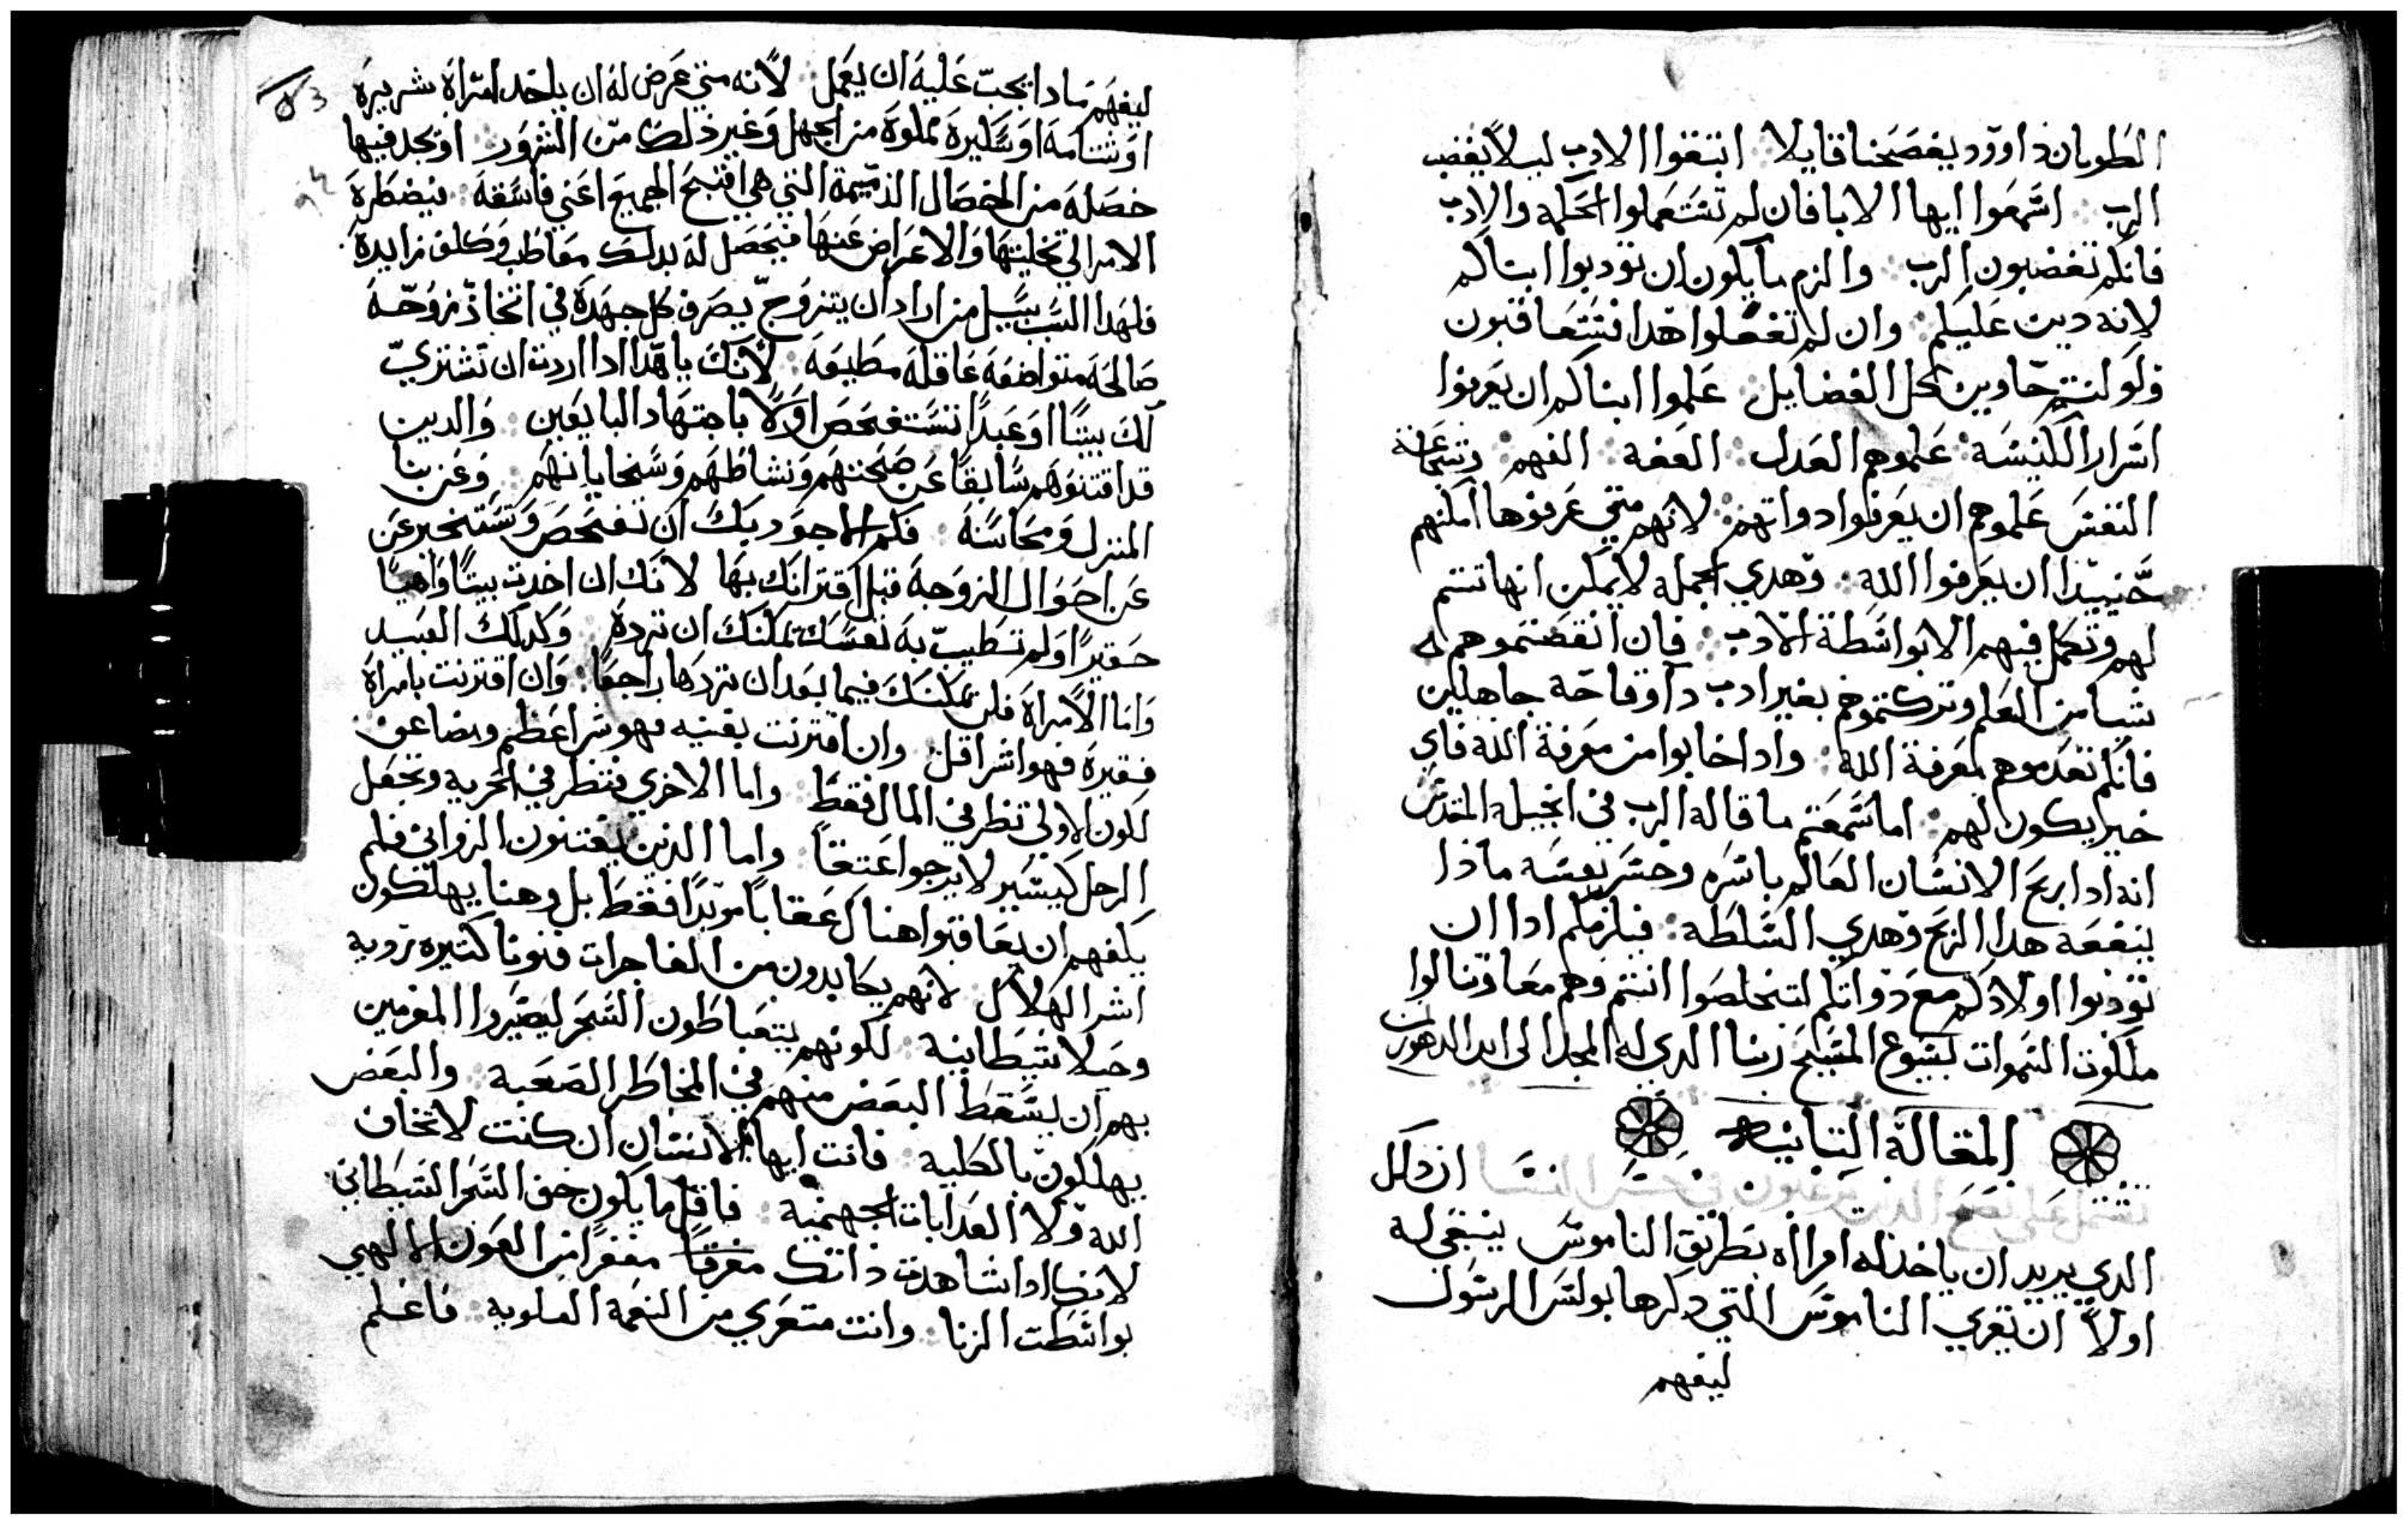 الطوبان داوود يفصحنا قايلا اتبقوا الادب ليلا يغضب
الرب اسمعوا ايها الابا فان لم تستعملوا الحكمه والادب
فانكم تغضبون الرب والزم ما يكون ان تودبوا ابناكم
لانه دين عليكم وان لم تفعلوا هدا فستعاقبون
ولو كنتم حاوين كل الفضايل علموا ابناكم ان يعرفوا
اسرار الكنيسه علموهم العدل العفه الفهم وشجاعة
النفس علموهم ان يعرفوا دواتهم لانهم متي عرفوها امكنهم
حينيدا ان يعرفوا الله وهدي الجمله لا يمكن انها تتم
لهم وتكمل فيهم الا بواسطة الادب فان انقصتموهم
شيا من العلم وتركتموهم بغير ادب داوقاحه جاهلين
فانكم تعدموهم لمعرفة الله وادا خابوا من معرفة الله فاي
خير يكون لهم اما سمعتم ما قاله الرب في انجيله المقدس
انه ادا ربح الانسان العالم باسره وخسر نفسه مادا
ينفعه هدا الربح وهدي السلطه فيلزمكم ادا ان
تودبوا اولادكم مع دواتكم لتخلصوا انتم وهم معا وتنالوا
ملكوت السموات بيسوع المسيح ربنا الدي له المجد الى ابد الدهور امين
المقالة التانيه
ان كل
الدي يريد ان ياخد له امراه بطريق الناموس ينبغي له
اولاً ان يقري الناموس التي دكرها بولس الرسول
ليفهم
53
ليفهم مادا يجب عليه ان يعمل لانه متي عرض له ان ياخد امراة شريرة
او شتامه او سكيرة مملوة من الجهل وغير ذلك من الشرور او يجد فيها
خصله من الخصال الذميمة التي هي اقبح الجميع اعني فاسقه فيضطرة
الامر الي تخليتها والاعراض عنها فيحصل له بدلك معاطب وكلف زايدة
فلهدا السبب سبيل من اراد ان يتزوج يصرف كل جهدة في اتخاذ زوجه
صالحه متواضعه عاقله مطيعه لانك يا هدا ادا اردت ان تشتري
لك بيتًا او عبدًا تستفحص اولاً باجتهاد البايعين والدين
قد اقتنوهم سابقًا عن صحتهم ونشاطهم وسخايا انهم وعن بنا
المنزل ومحاسنه فكم الاجود بك ان تفحص وتستخبر عن
عن احوال الزوجه قبل اقترانك بها لانك ان اخدت بيتًا واهيًا
حقيرًا ولم تطيب به نفسك تمكنك ان تردة وكدلك العبيد
واما الامراة فلن يمكنك فيما بعد ان تردها راجعًا وان اقترنت بامراة
فقيرة فهو اشر اقل وان اقترنت بغنيه فهو شر اعظم ومضاعف
لكون الاولي تنظر في المال فقط واما الاخري فتنظر في الحريه وتجعل
الرجل كيسير لا يرجوا عتقًا واما الذين يقتنون الزواني فلم
يكفهم ان يعاقبوا هناك عقابًا موبدًا فقط بل وهنا يهلكون
اشر الهلاك لانهم يكابدون من الفاجرات فنونا كتيره رديه
وحيلا شيطانيه لكونهم يتعباطون السحر ليصيروا المغرمين
بهم ان يسقط البعض منهم في المخاطر الصعبه والبعض
يهلكون بالكليه فانت ايها الانسان ان كنت لا تخاف
الله ولا العدابات الجهنميه فاقل ما يكون خف السحر الشيطاني
لانك ادا شاهدت داتك مغرقًا مقفرًا من العون الالهي
بواسطت الزنا وانت متعري من النعمه العلويه فاعلم